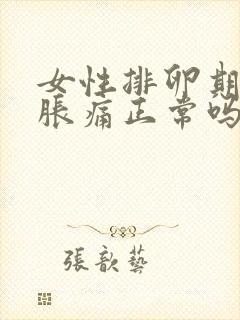 女性排卵期
胀痛正常吗
张歆艺